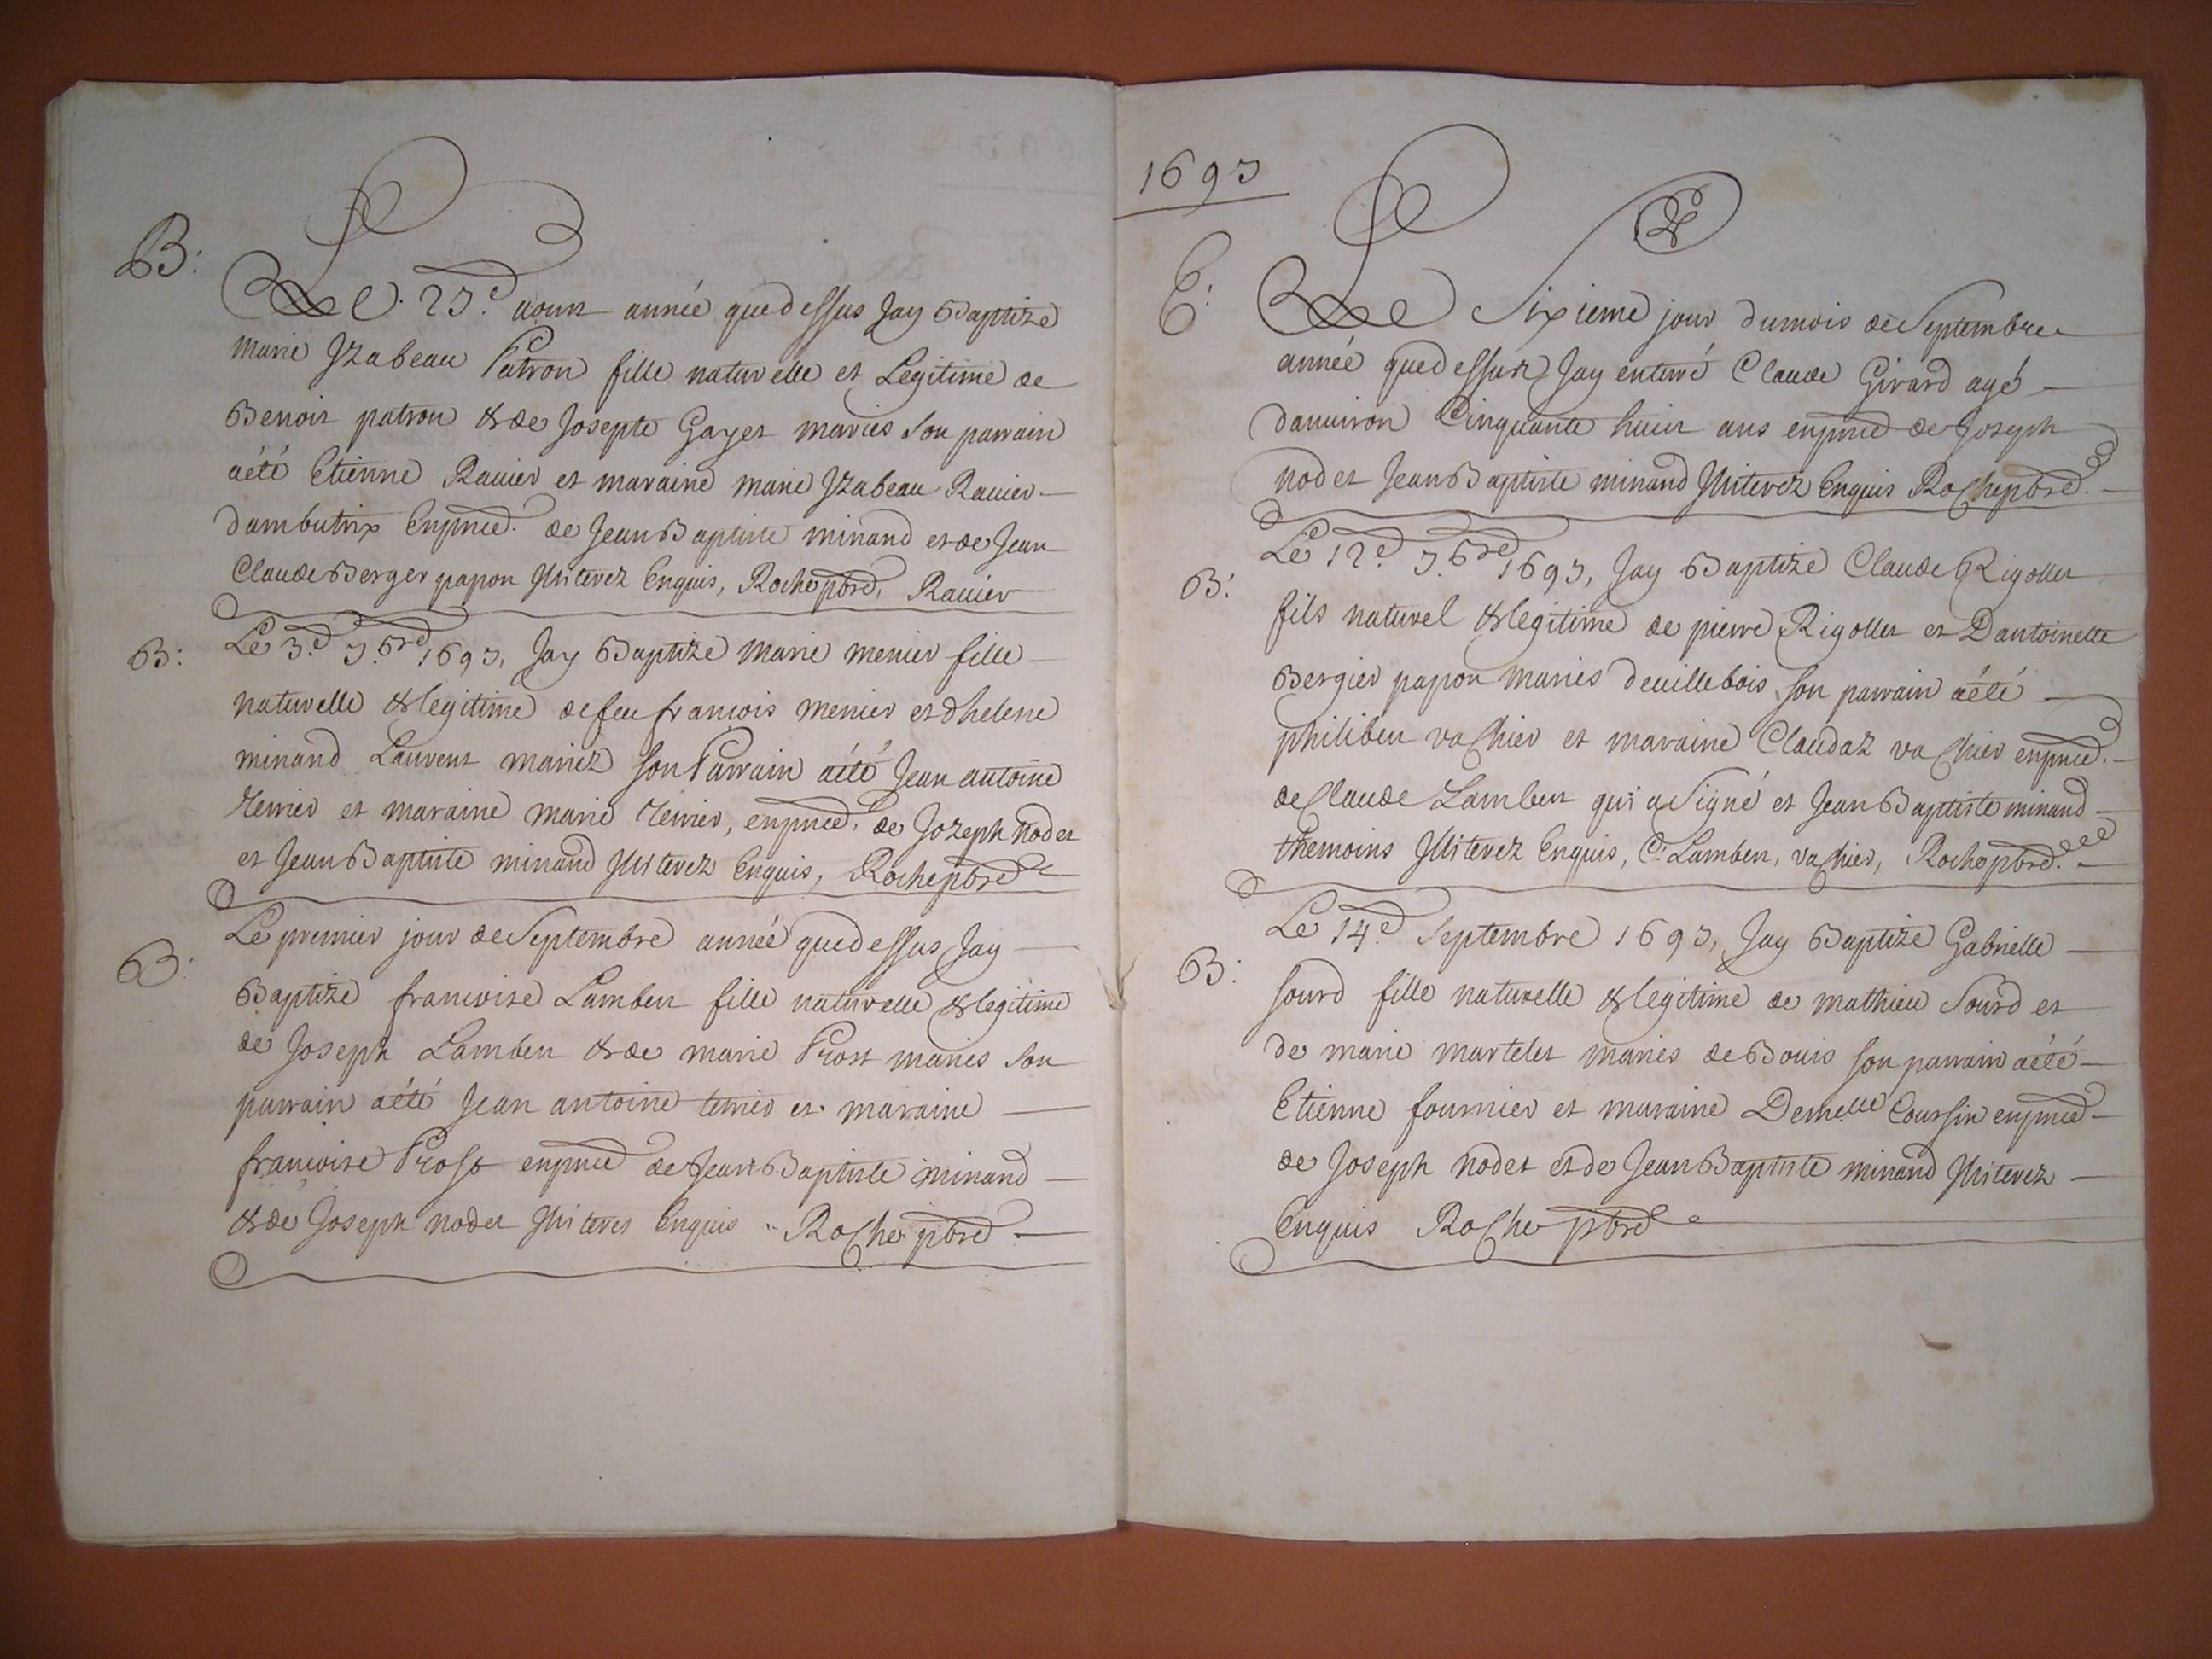 B:
Le 25.e aoust année quedessus Jay Baptizé
marie Jzabeau Patron fille naturelle et Legitime de
Benoit patron & de Josepte Gayet mariés Son parrain
aété Etienne Rauier et maraine marie Jzabeau Rauier
dambutrix Enpnce. de Jean Baptiste minand et de Jean
Claude Berger papon Jlliterez Enquis, Roche pbre, Rauier
B:
Le 3.e 7.bre 1695, Jay Baptizé marie menier fille
naturelle & legitime de feu francois menier et dhelene
minand Laurent mariez son Parrain aété Jean antoine
terrier et maraine marie terrier, enpnce. de Jozeph nodet
et Jean Baptiste minand Jlliterez Enquis, Roche pbre
B:
Le premier jour de Septembre année quedessus Jay
Baptizé francoise Lambert fille naturelle & legitime
de Joseph Lambert & de marie Prost mariés Son
parrain aété Jean antoine terrier et maraine
francoise Prost enpnce de Jean Baptiste minand
& de Joseph nodet Jlliteres Enquis Roche pbre
1695
E:
Le Sixieme jour dumois de Septembre
année quedessus Jay enterré Claude Girard agé
danuiron Cinquante huit ans enpnce de Joseph
nodet Jean Baptiste minand Jlliterez Enquis Roche pbre.
B:
Le 12.e 7.bre 1695, Jay Baptizé Claude Rigollet
fils naturel & legitime de pierre Rigollet et Dantoinette
Bergier papon mariés deuillebois son parrain aété
philibert vachier et maraine Claudaz vachier enpnce.
de Claude Lambert qui a Signé et Jean Baptiste minand
themoins Jlliterez Enquis, C. Lambert, vachier, Roche pbre.
B:
Le 14.e Septembre 1695, Jay Baptizé Gabrielle
sourd fille naturelle & legitime de mathieu Sourd et
de marie martelet mariés de Bouis son parrain aété
Etienne fournier et maraine Demelle Coursin enpnce
de Joseph nodet et de Jean Baptiste minand Jlliterez
Enquis Roche pbre